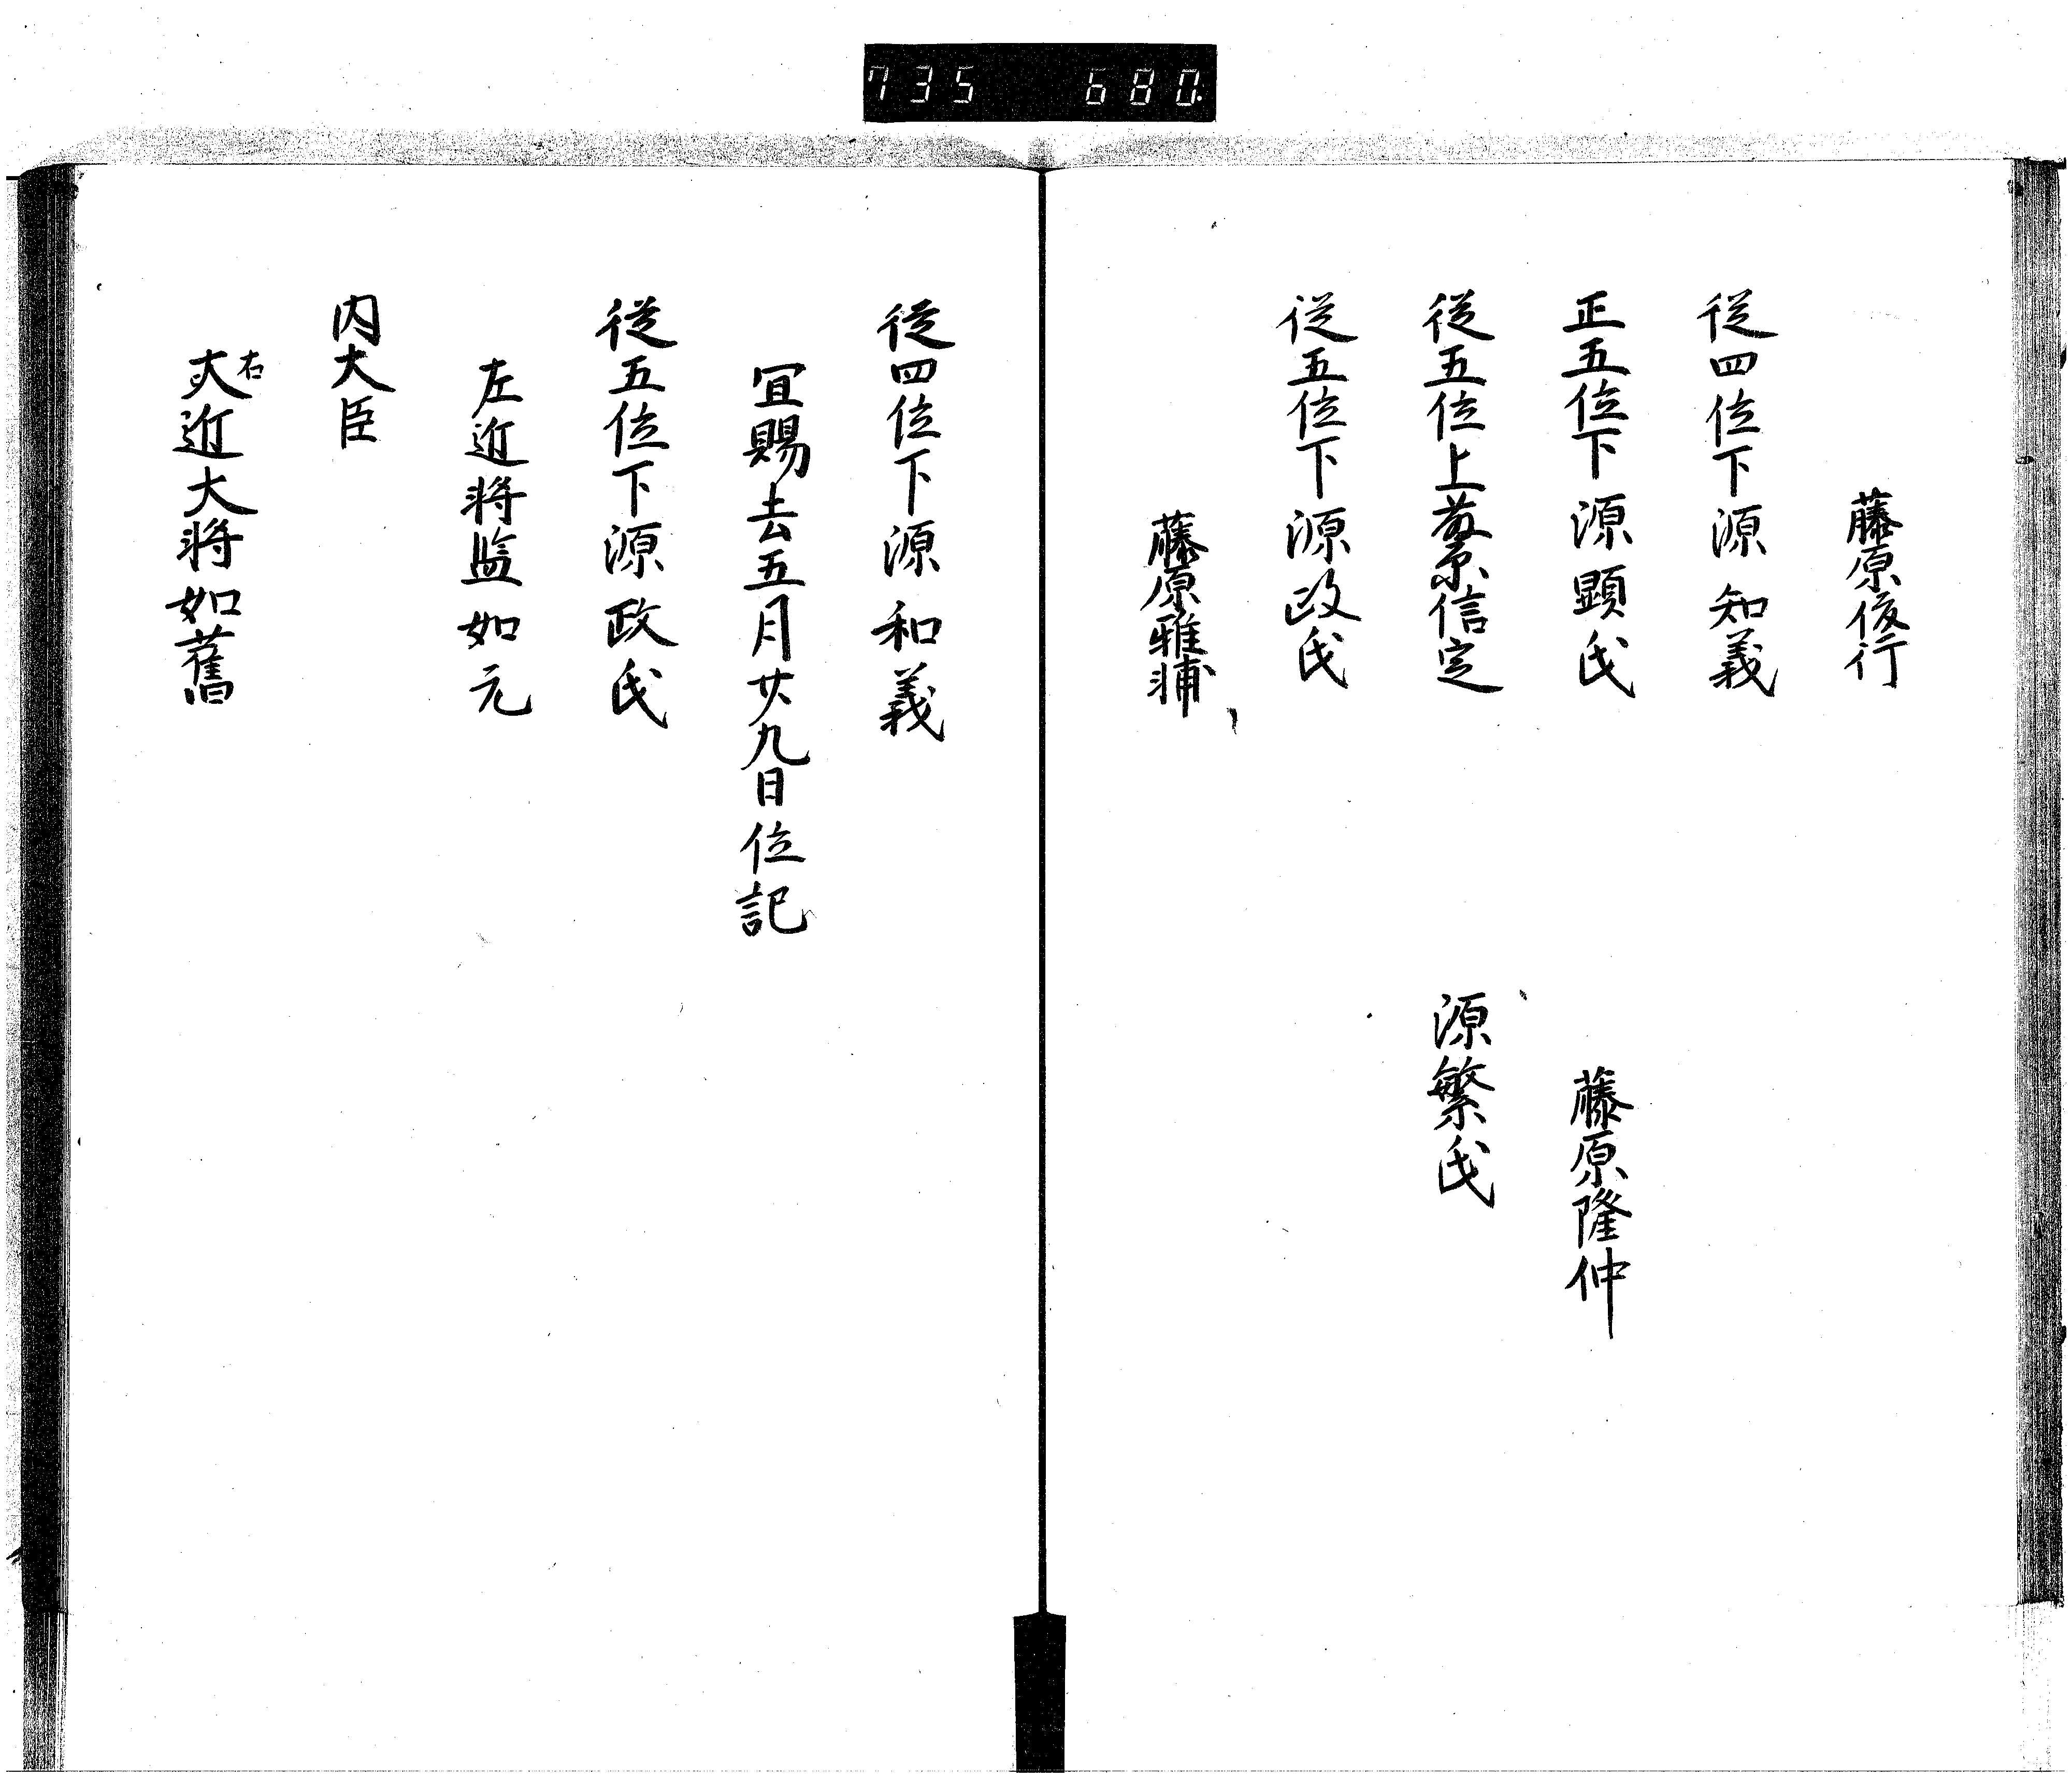 735 680
藤原俊行
従四位下源知義
正五位下源顕氏 藤原隆仲
従五位上信定 源繁氏
従五位下源政氏
藤原雅輔
従四位下源和義
宜賜去五月廿九日位記
従五位下源政氏
左近将監如元
内大臣
右近大将如舊